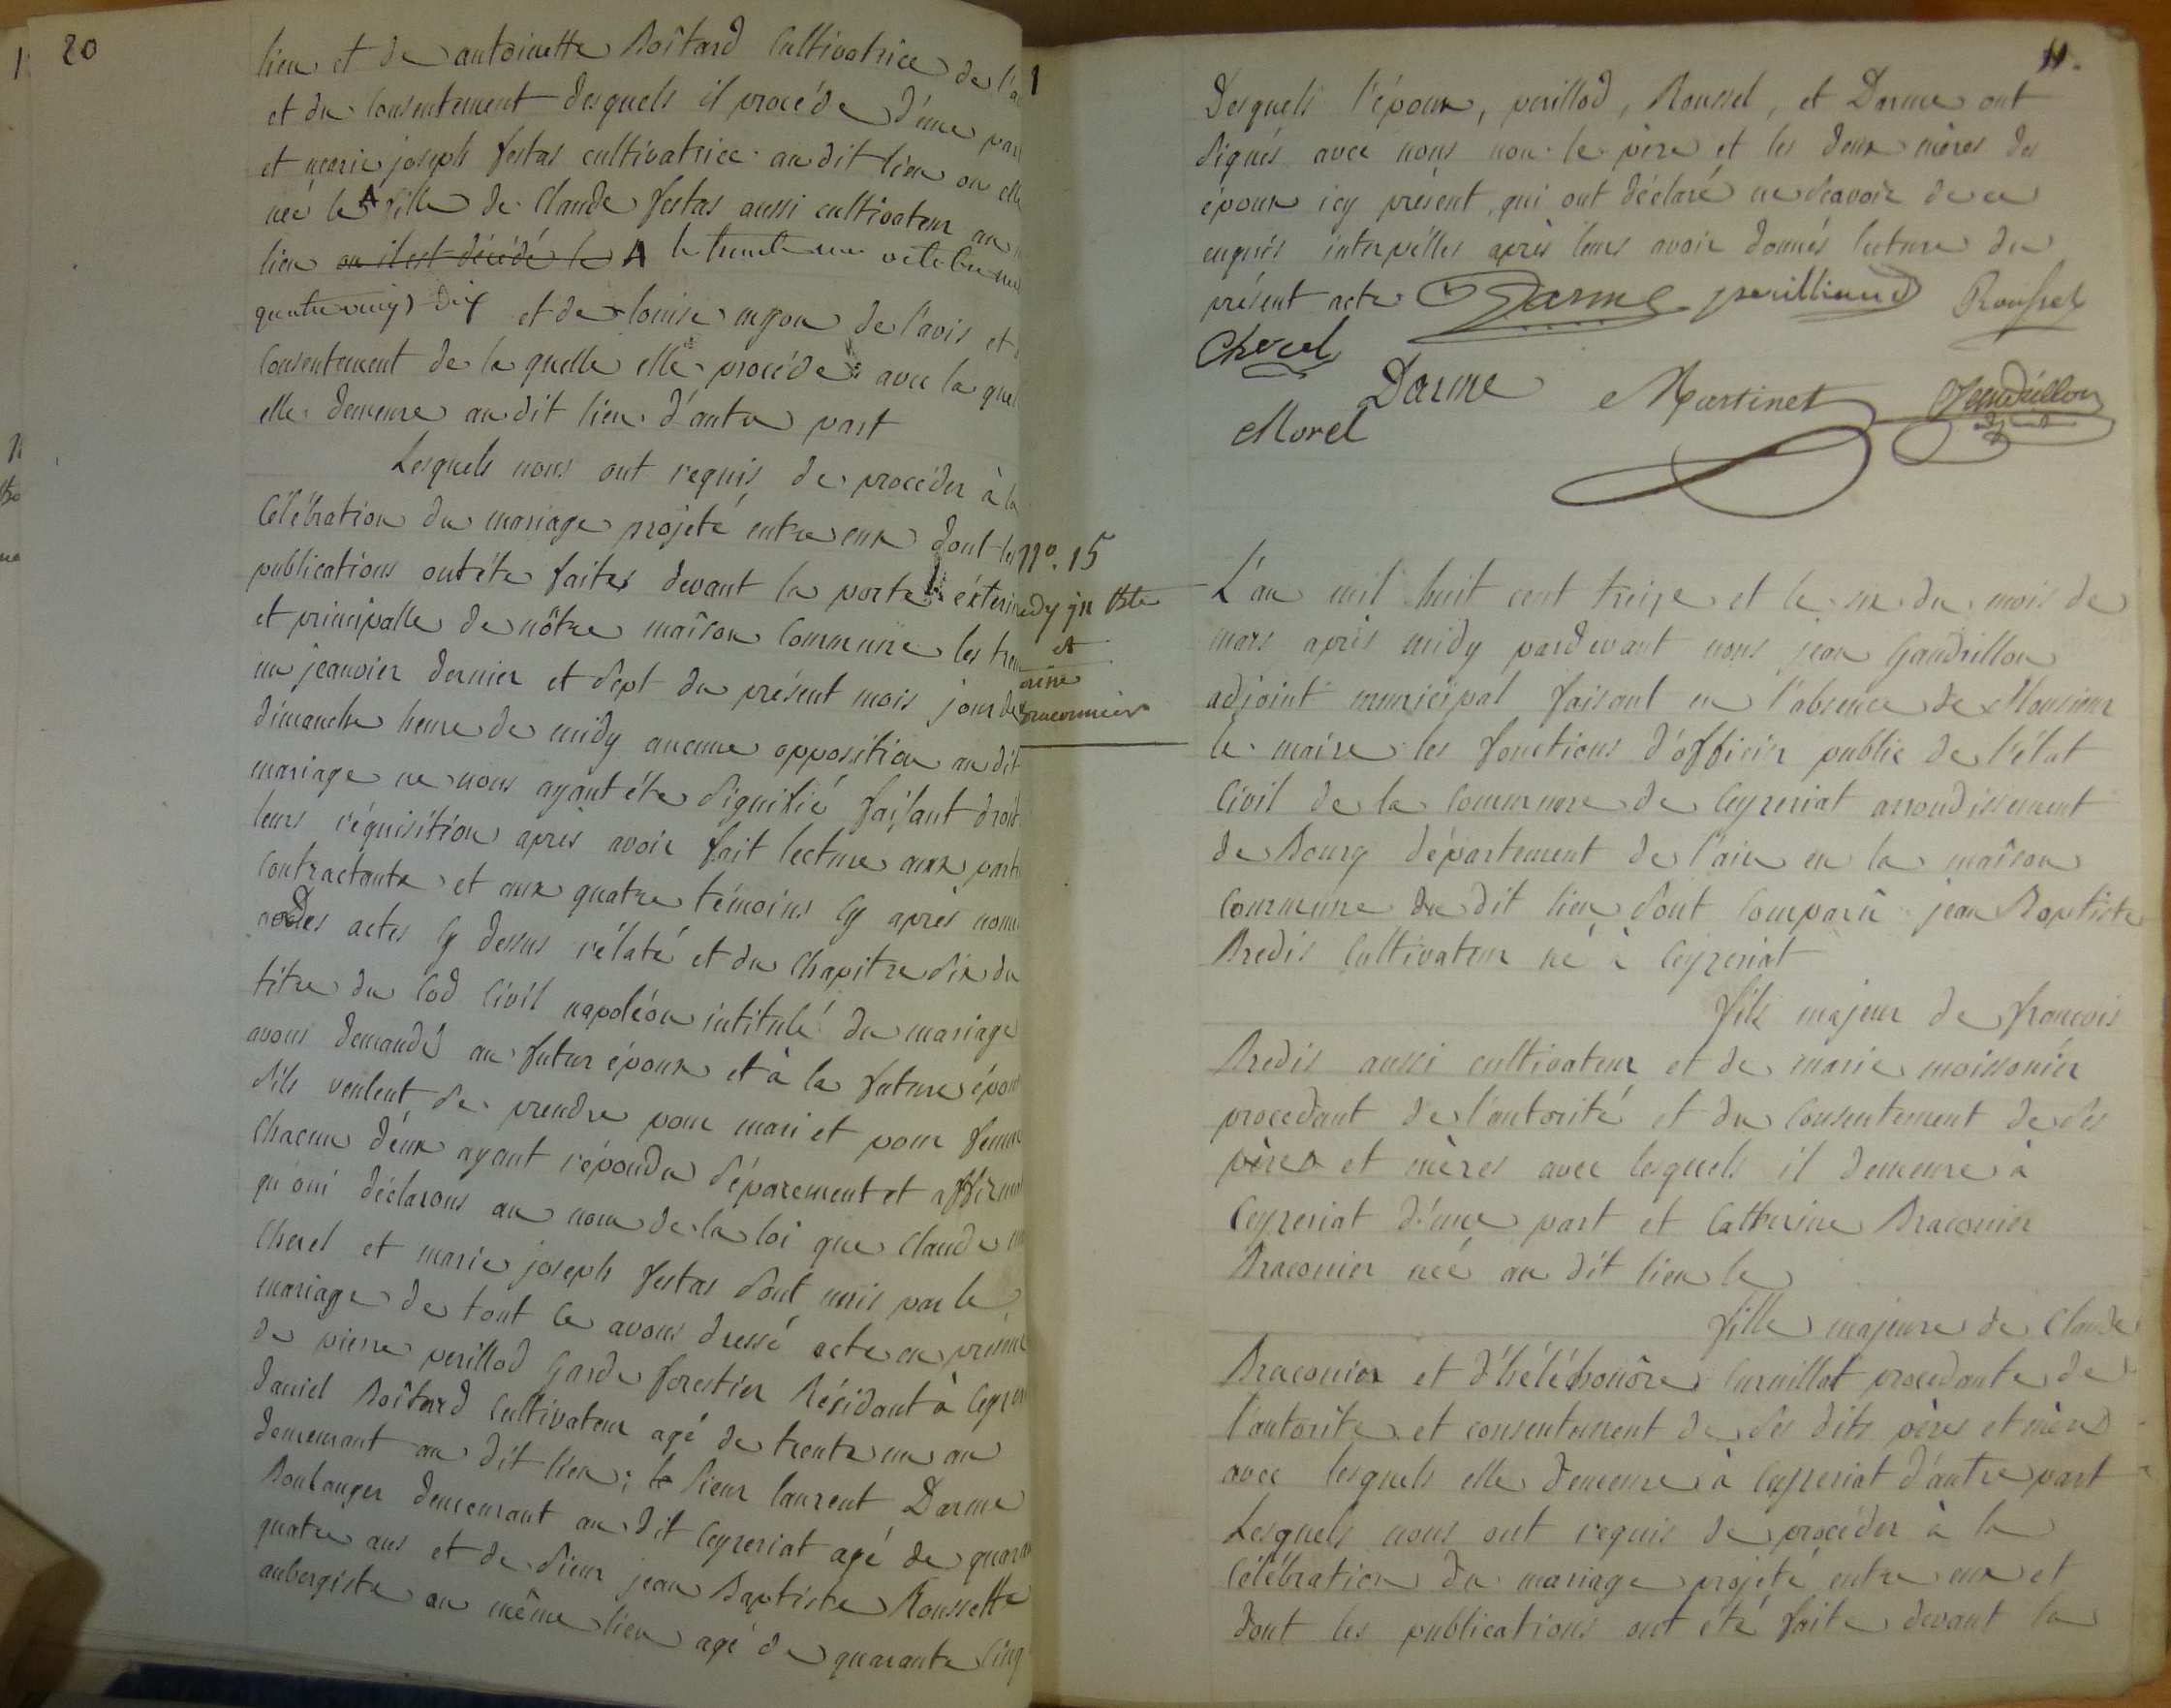 20
lieu et de antoinette Boîtard Cultivatrice de l'a
et du Consentement desquels il procéde d'éune par
et marie joseph festas cultivatrice au dit lieu ou elle
née le A fille de Claude festas aussi cultivateur au
lieu ou il est décédé le A le trente un octobre
quatre vingt dix et de louise mijon de l'avis et
Consentement de la quelle elle procéde avec la quel
elle demeure au dit lieu d'autre part
Lesquels nous ont requis de procéder à la
Célébration du mariage projeté entre eux dont les
publications ont éte faites devant la porte éxterieu
et principalle de nôtre maîson Commune les tren
un jeanvier dernier et sept du présent mois jour de
dimanche heure de midy aucune opposition au dit
mariage ne nous ayant éte signifié faisant droit
leurs réquisition après avoir fait lecture aux parti
Contractante et aux quatre témoins Cy après nom
des actes Cy dessus rélaté et du Chapitre six du
titre du Cod Civil napoléon intitulé du mariage
avons demandé au futur époux et à la future épou
s'ils veulent se prendre pour mari et pour femme
Chacun d'éux ayant répondu séparement et affirma
qu'oui déclarons au nom de la loi que Claude
Cherel et marie joseph festas sont unis par le
mariage de tout Ce avons dressé acte en présence
de pierre perillod Garde forestier Résidant à Ceyze
Daniel Boîtard Cultivateur agé de trente un an
demeurant au dit lieu; le sieur laurent Darme
Boulanger demeurant au dit Ceyzeriat agé de quaran
quatre ans et de sieur jean Baptiste Roussette
aubergiste au même lieu agé de quarante Cinq
11.
Desquels l'époux, perillod, Roussel, et Darme ont
signés avec nous non le père et les deux mères des
époux icy présent, qui ont déclaré ne scavoir de ce
enquis interpéllés après leurs avoir donnés lecture du
présent acte Darme perilliaud Roussel
Cherel
Darme Martinet Gaudrillon
Morel
adjoint
No. 15
edy jn Bte
et
erine
raconnier
L'an mil huit cent treize et le six du mois de
mars après midy pardevant nous jean Gaudrillon
adjoint municipal faisant en l'absence de Monsieur
le maire les fonctions d'officier public de l'état
Civil de la Commune de Ceyzeriat arrondissement
de Bourg département de l'ain en la maîson
Commune du dit lieu sont Comparû jean Baptiste
Bredis Cultivateur né à Ceyzeriat
fils majeur de francois
Bredis aussi cultivateur et de marie moissonier
procedant de l'autorité et du Consentement de ses
pères et mères avec lesquels il demeure à
Ceyzeriat d'éune part et Catherine Braconier
Braconier née au dit lieu le
fille majeure de Claude
Braconier et d'héléhonôre Curuillat procedante de
l'autorite et consentement de ses dits pères et mère
avec lesquels elle demeure à Ceyzeriat d'autre part
Lesquels nous ont requis de procéder à la
Célébration du mariage projété entre eux et
dont les publications ont été faite devant la